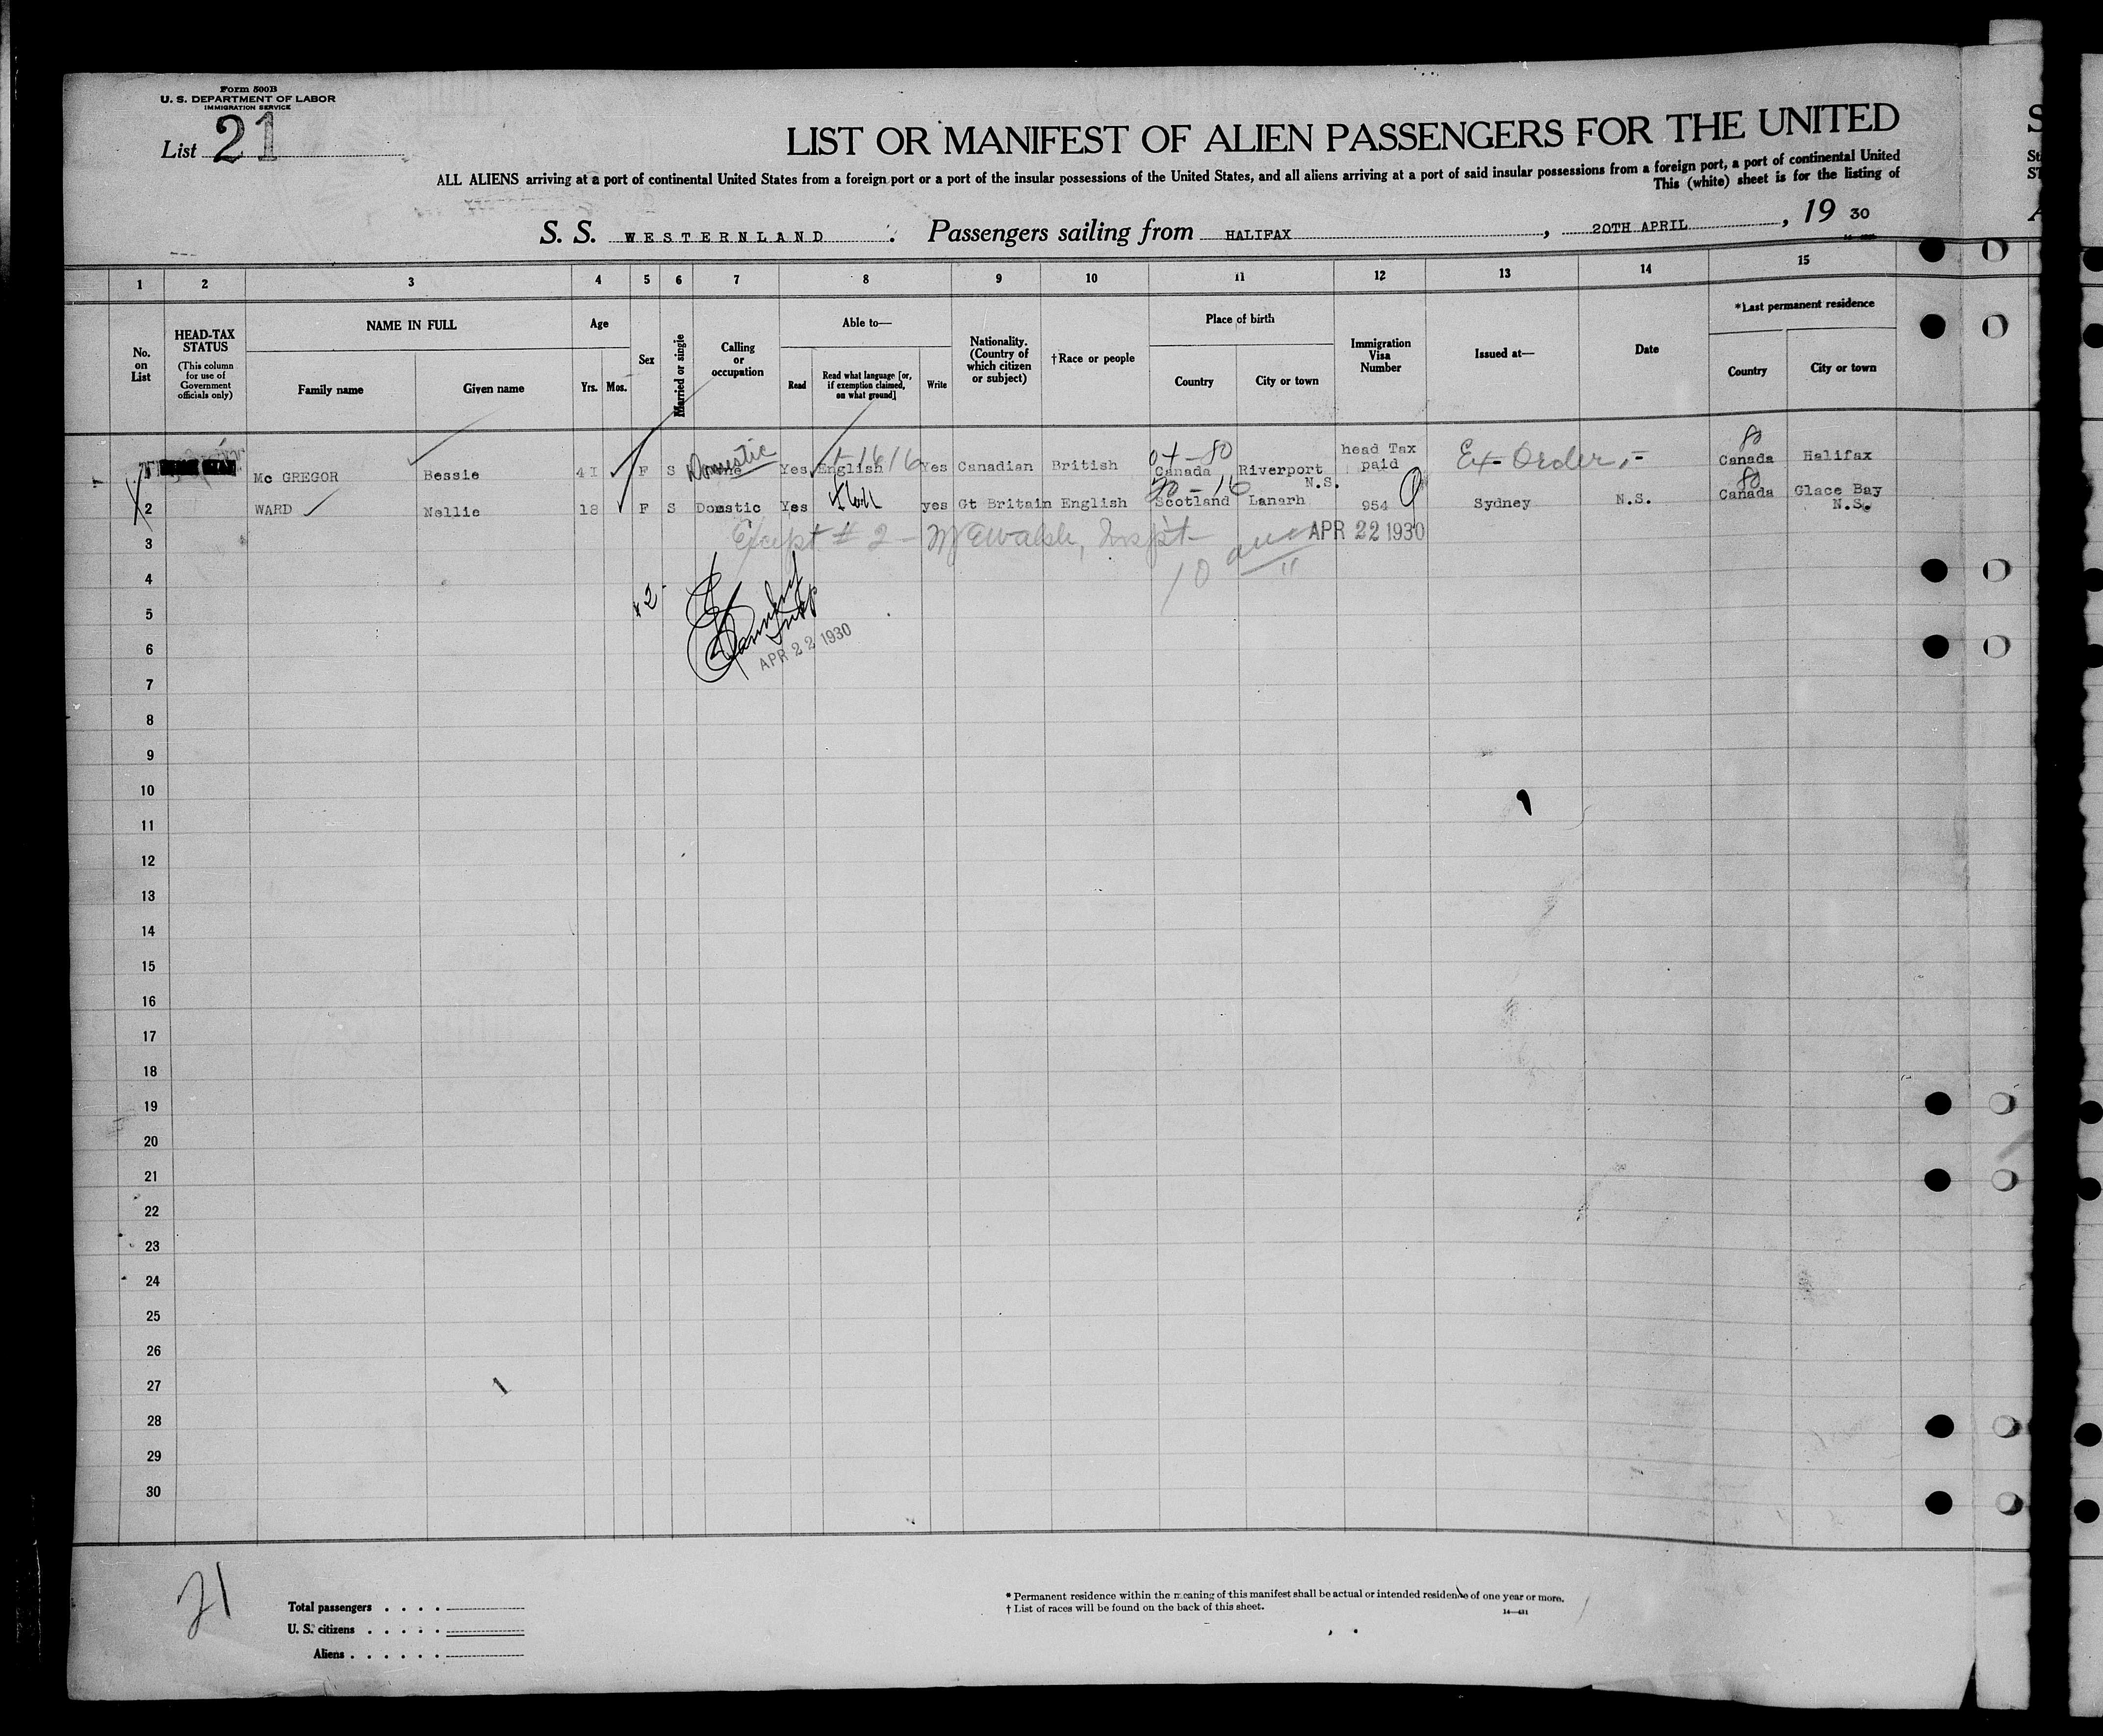 Form 500B
U. S. DEPARTMENT OF LABOR
IMMIGRATION SERVICE
List 21
LIST OR MANIFEST OF ALIEN PASSENGERS FOR THE UNITED
ALL ALIENS arriving at a port of continental United States from a foreign port or a port of the insular possessions of the United States, and all aliens arriving at a port of said insular possessions from a foreign port, a port of continental United
This (white) sheet is for the listing of
S. S. WESTERNLAND Passengers sailing from HALIFAX, 20TH APRIL, 19 30
1 2 3 4 5 6 7 8 9 10 11 12 13 14 15
No. on List
HEAD-TAX STATUS
(This column for use of Government officials only)
NAME IN FULL
Family name Given name
Age
Yrs. Mos.
Sex
Married or single
Calling or occupation
Able to—
Read
Read what language [or, if exemption claimed, on what ground]
Write
Nationality. (Country of which citizen or subject)
†Race or people
Place of birth
Country City or town
Immigration Visa Number
Issued at—
Date
*Last permanent residence
Country City or town
1 Mc GREGOR Bessie 41 F S Domestic Yes English Yes Canadian British Canada Riverport N.S. head Tax paid Ex-Order Canada Halifax
2 WARD Nellie 18 F S Domstic Yes yes Gt Britain English Scotland Lanarh 954 Sydney N.S. Canada Glace Bay N.S.
3 Except # 2 - APR 22 1930
4
5
6
APR 22 1930
7
8
9
10
11
12
13
14
15
16
17
18
19
20
21
22
23
24
25
26
27
28
29
30
21
Total passengers . . . .
U. S. citizens . . . . .
Aliens . . . . . .
* Permanent residence within the meaning of this manifest shall be actual or intended residence of one year or more.
† List of races will be found on the back of this sheet.